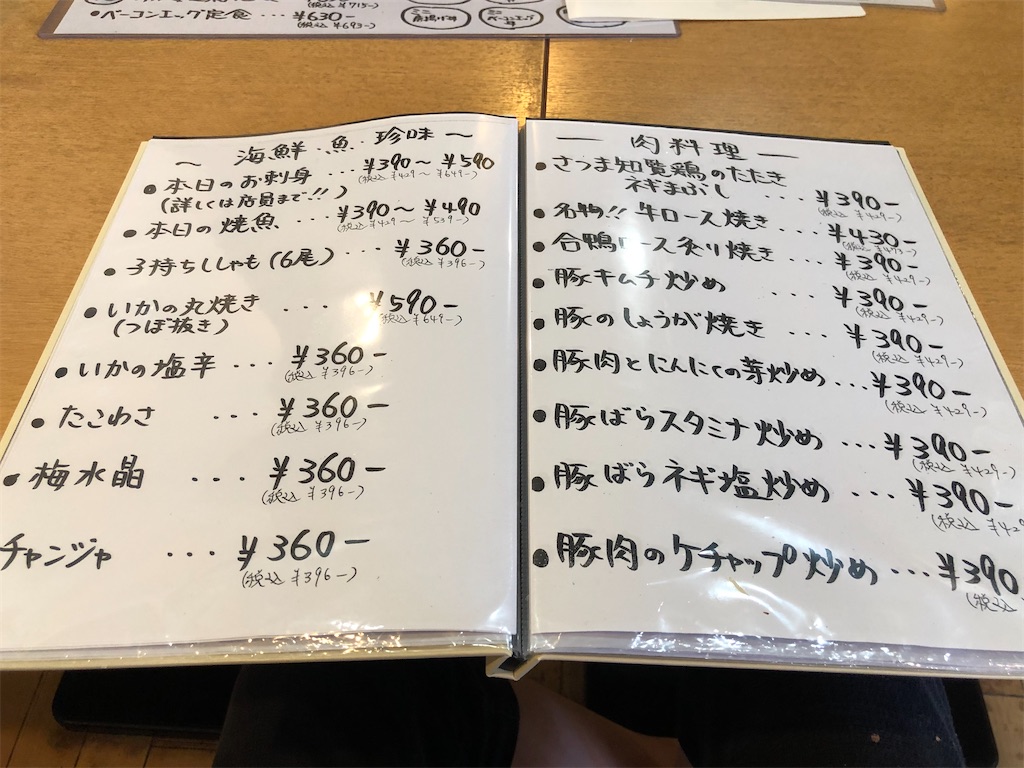 (税込 ¥715-)
・ベーコンエッグ定食 ・・・ ¥630-
(税込 ¥693-)
ミニ
ミニ ベーコンエッグ丼
〜 海鮮・魚・珍味 〜
・本日のお刺身 ・・・ ¥390〜¥590
(詳しくは店員まで!!) (税込 ¥429〜¥649-)
・本日の焼魚 ・・・ ¥390〜¥490
(税込 ¥429〜¥539-)
・子持ちししゃも(6尾) ・・・ ¥360-
(税込 ¥396-)
・いかの丸焼き ・・・ ¥590-
(つぼ抜き) (税込 ¥649-)
・いかの塩辛 ・・・ ¥360-
(税込 ¥396-)
・たこわさ ・・・ ¥360-
(税込 ¥396-)
・梅水晶 ・・・ ¥360-
(税込 ¥396-)
チャンジャ ・・・ ¥360-
(税込 ¥396-)
— 肉料理 —
・さつま知覧鶏のたたき
ネギまぶし ・・・ ¥390-
(税込 ¥429-)
・名物!! 牛ロース焼き ・・・ ¥430-
(税込 ¥473-)
・合鴨ロース炙り焼き ・・・ ¥390-
(税込 ¥429-)
・豚キムチ炒め ・・・ ¥390-
(税込 ¥429-)
・豚のしょうが焼き ・・・ ¥390-
(税込 ¥429-)
・豚肉とにんにくの芽炒め ・・・ ¥390-
(税込 ¥429-)
・豚ばらスタミナ炒め ・・・ ¥390-
(税込 ¥429-)
・豚ばらネギ塩炒め ・・・ ¥390-
(税込 ¥429
・豚肉のケチャップ炒め ・・・ ¥390
(税込